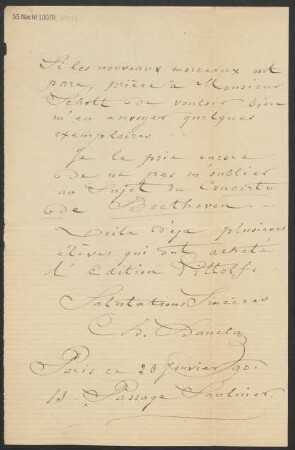 55 Nachl 100/B
Si les nouveaux morceaux ont
paru, prière à Monsieur
Schott de vouloir bien
m'en envoyer quelques
exemplaires.
Je le prie encore
de ne pas m'oublier
au Sujet du Concerto
de Beethoven
Voilà déjà plusieurs
élèves qui ont acheté
l'Edition Littolf.
Salutations Sincères
Ch. Dancla
Paris ce 28 Janvier 90.
13. Passage Saulnier.